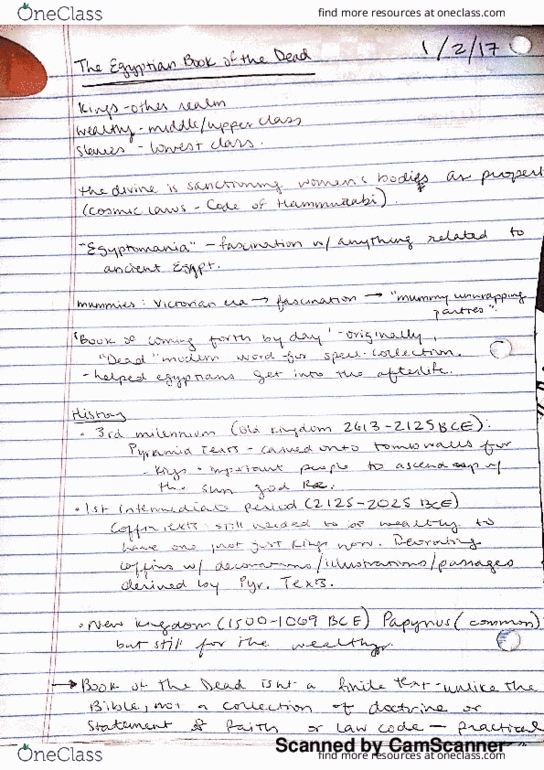 OneClass
find more resources at oneclass.com
The Egyptian Book of the Dead
1/2/17
Kings - other realm
wealthy - middle/upper class
Slaves - lowest class.
the divine is sanctioning women's bodies as propert
(cosmic laws - Code of Hammurabi).
"Egyptomania" - fascination w/ anything related to
ancient Egypt.
mummies: Victorian era → fascination → "mummy unwrapping
parties".
'Book of coming forth by day' - originally,
"Dead" modern word for spell-collection.
- helped egyptians get into the afterlife.
History
• 3rd millennium (old kingdom 2613-2125 BCE):
Pyramid Texts - carved onto tomb walls for
kings + important people to ascend up w/
the sun god Re.
• 1st Intermediate period (2125-2025 BCE)
Coffin texts: still needed to be wealthy to
have one, not just kings now. Decorating
coffins w/ decorations/illustrations/passages
derived by Pyr. Texts.
• New kingdom (1500-1069 BCE) Papyrus (common)
but still for the wealthy.
→ Book of the Dead isnt a finite text - unlike the
Bible, not a collection of doctrine or
Statement of Faith or law code - practical
Scanned by CamScanner
OneClass
find more resources at oneclass.com